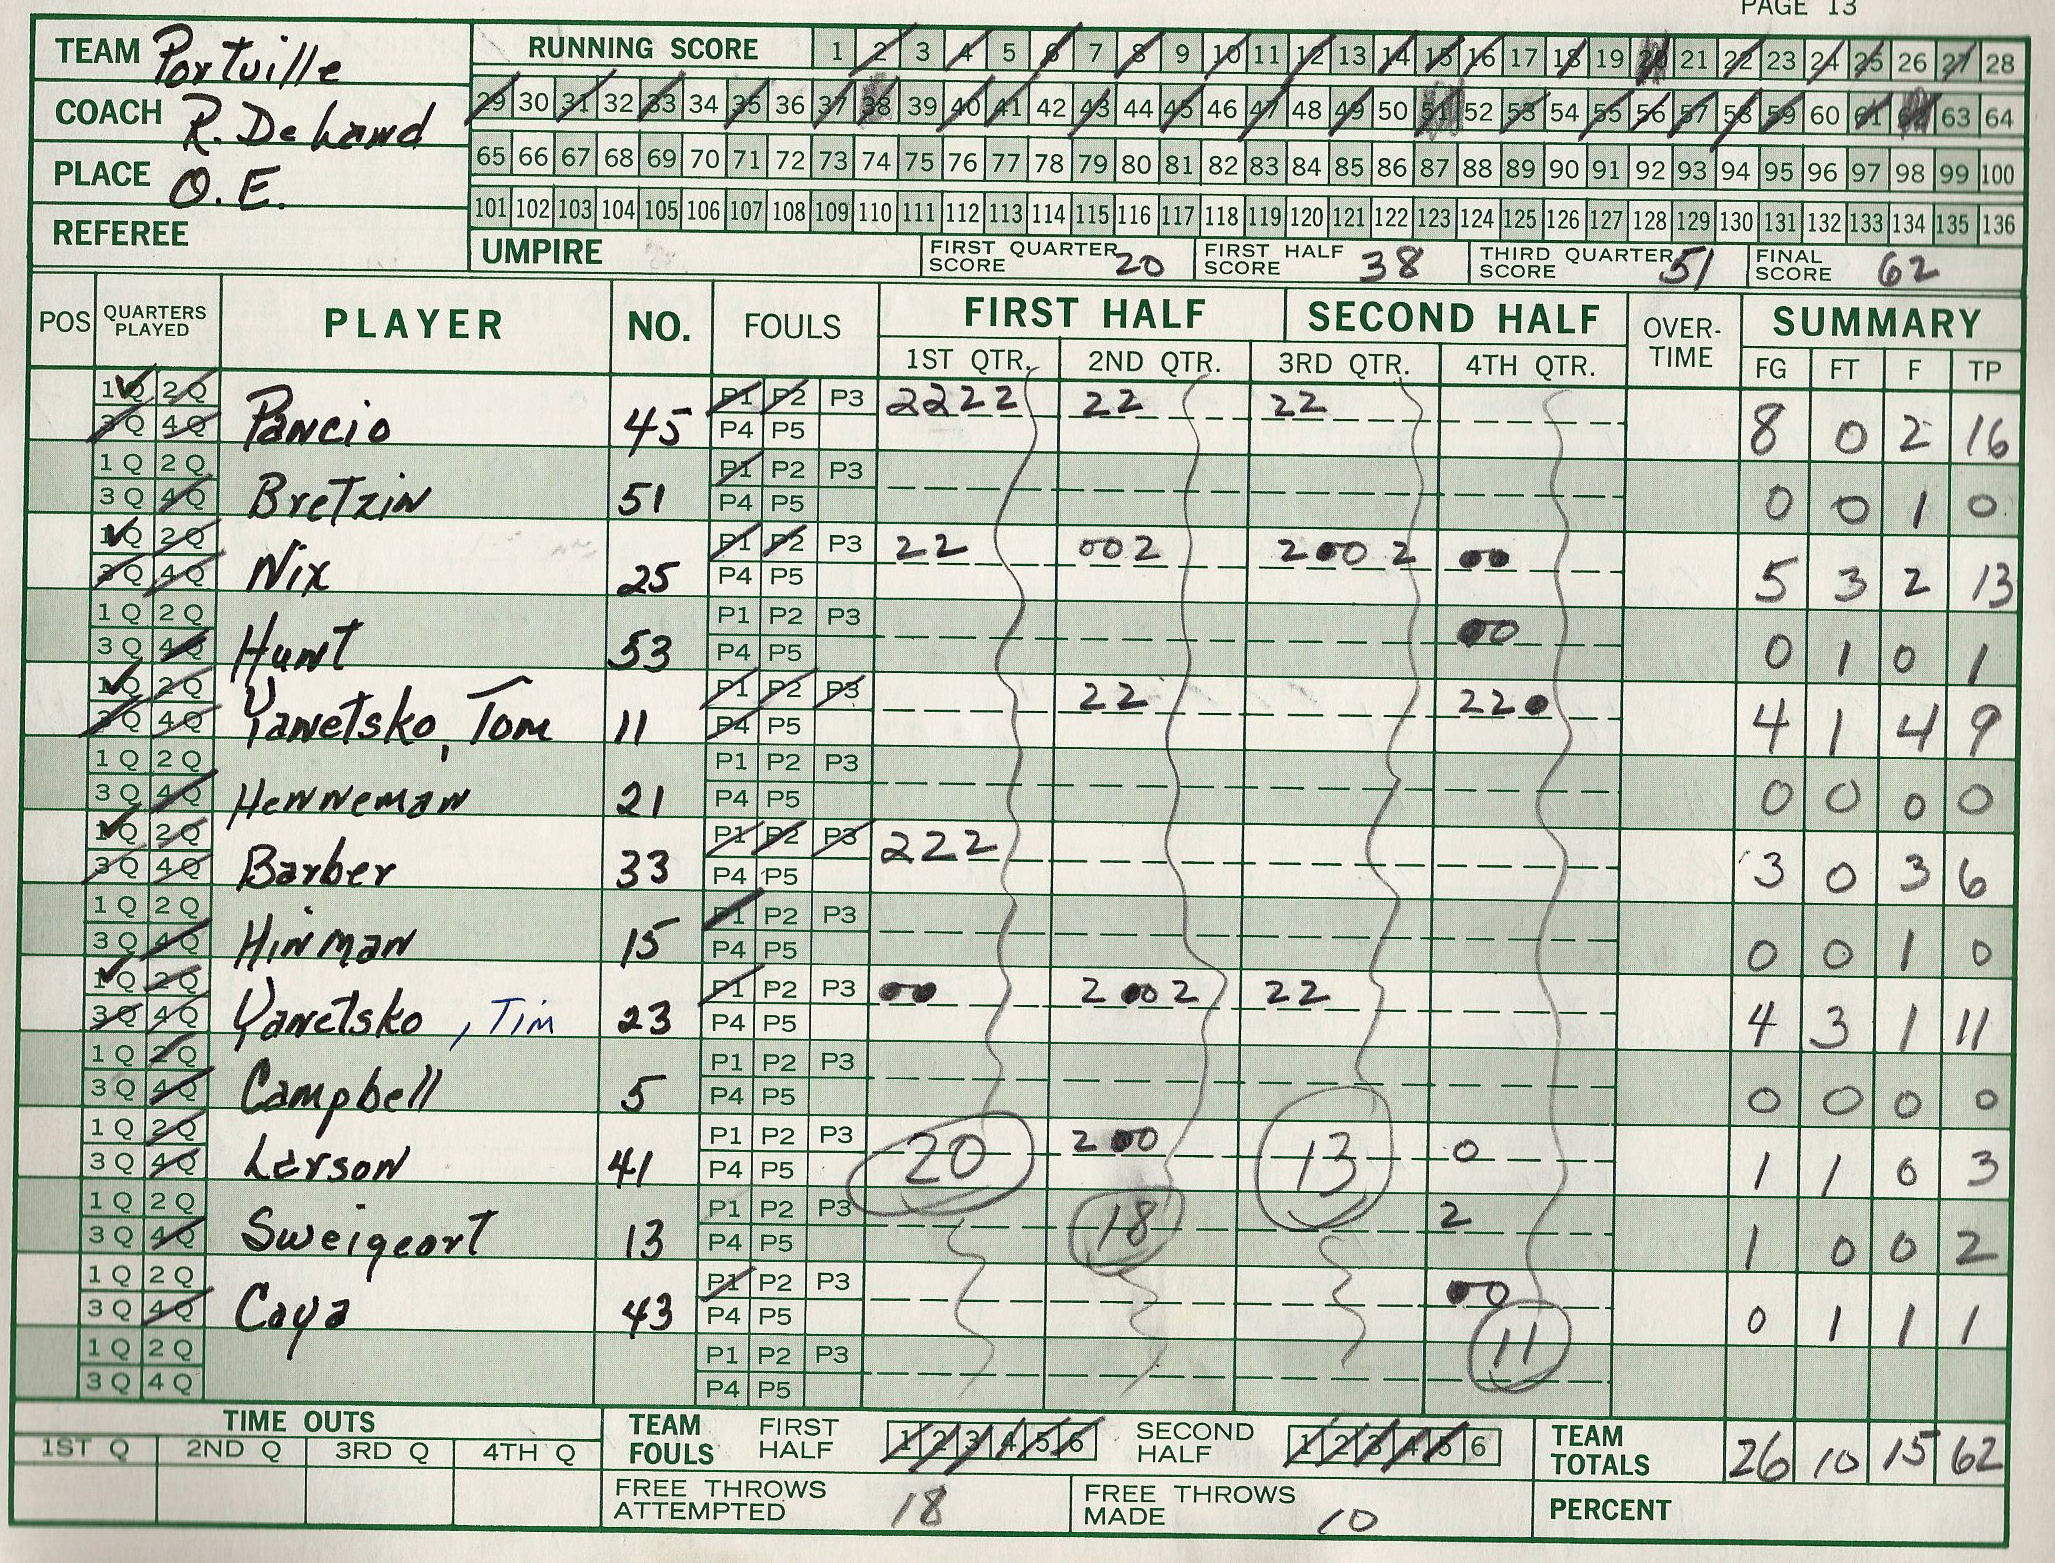 PAGE 13
TEAM Portville
COACH R. DeLand
PLACE O.E.
REFEREE
RUNNING SCORE 1 2 3 4 5 6 7 8 9 10 11 12 13 14 15 16 17 18 19 20 21 22 23 24 25 26 27 28
29 30 31 32 33 34 35 36 37 38 39 40 41 42 43 44 45 46 47 48 49 50 51 52 53 54 55 56 57 58 59 60 61 62 63 64
65 66 67 68 69 70 71 72 73 74 75 76 77 78 79 80 81 82 83 84 85 86 87 88 89 90 91 92 93 94 95 96 97 98 99 100
101 102 103 104 105 106 107 108 109 110 111 112 113 114 115 116 117 118 119 120 121 122 123 124 125 126 127 128 129 130 131 132 133 134 135 136
UMPIRE FIRST QUARTER SCORE 20 FIRST HALF SCORE 38 THIRD QUARTER SCORE 51 FINAL SCORE 62
POS QUARTERS PLAYED PLAYER NO. FOULS FIRST HALF SECOND HALF OVER-TIME SUMMARY
1ST QTR. 2ND QTR. 3RD QTR. 4TH QTR. FG FT F TP
1Q 2Q P1 P2 P3 2222 22 22
3Q 4Q Pancio 45 P4 P5 8 0 2 16
1Q 2Q P1 P2 P3
3Q 4Q Bretzin 51 P4 P5 0 0 1 0
1Q 2Q P1 P2 P3 22 002 2002 00
3Q 4Q Nix 25 P4 P5 5 3 2 13
1Q 2Q P1 P2 P3 00
3Q 4Q Hunt 53 P4 P5 0 1 0 1
1Q 2Q P1 P2 P3 22 220
3Q 4Q Yanetsko, Tom 11 P4 P5 4 1 4 9
1Q 2Q P1 P2 P3
3Q 4Q Henneman 21 P4 P5 0 0 0 0
1Q 2Q P1 P2 P3 222
3Q 4Q Barber 33 P4 P5 3 0 3 6
1Q 2Q P1 P2 P3
3Q 4Q Hinman 15 P4 P5 0 0 1 0
1Q 2Q P1 P2 P3 00 2002 22
3Q 4Q Yanetsko, Tim 23 P4 P5 4 3 1 11
1Q 2Q P1 P2 P3
3Q 4Q Campbell 5 P4 P5 0 0 0 0
1Q 2Q P1 P2 P3 20 200 13 0
3Q 4Q Larson 41 P4 P5 1 1 0 3
1Q 2Q P1 P2 P3 18 2
3Q 4Q Sweigeart 13 P4 P5 1 0 0 2
1Q 2Q P1 P2 P3 00
3Q 4Q Caya 43 P4 P5 0 1 1 1
1Q 2Q P1 P2 P3 11
3Q 4Q P4 P5
TIME OUTS TEAM FOULS FIRST HALF 1 2 3 4 5 6 SECOND HALF 1 2 3 4 5 6 TEAM TOTALS 26 10 15 62
1ST Q 2ND Q 3RD Q 4TH Q
FREE THROWS ATTEMPTED 18 FREE THROWS MADE 10 PERCENT